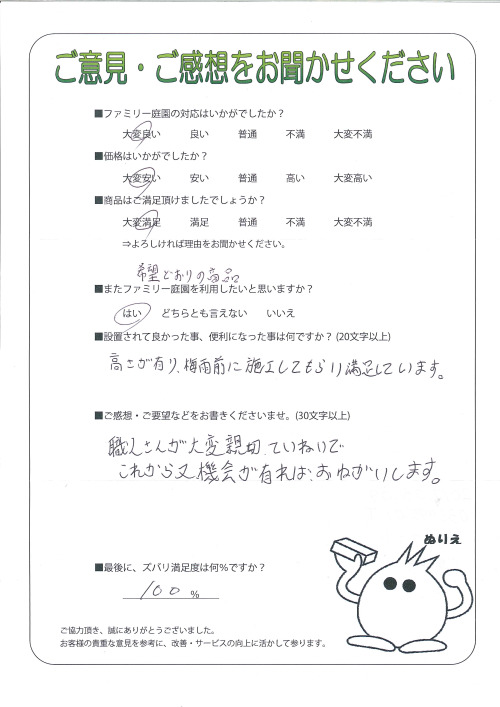 ご意見・ご感想をお聞かせください
■ファミリー庭園の対応はいかがでしたか？
大変良い 良い 普通 不満 大変不満
■価格はいかがでしたか？
大変安い 安い 普通 高い 大変高い
■商品はご満足頂けましたでしょうか？
大変満足 満足 普通 不満 大変不満
⇒よろしければ理由をお聞かせください。
希望どおりの商品
■またファミリー庭園を利用したいと思いますか？
はい どちらとも言えない いいえ
■設置されて良かった事、便利になった事は何ですか？(20文字以上)
高さが有り、梅雨前に施工してもらい満足しています。
■ご感想・ご要望などをお書きくださいませ。(30文字以上)
職人さんが大変親切、ていねいで
これから又機会が有れば、おねがいします。
ぬりえ
■最後に、ズバリ満足度は何％ですか？
100 %
ご協力頂き、誠にありがとうございました。
お客様の貴重な意見を参考に、改善・サービスの向上に活かして参ります。